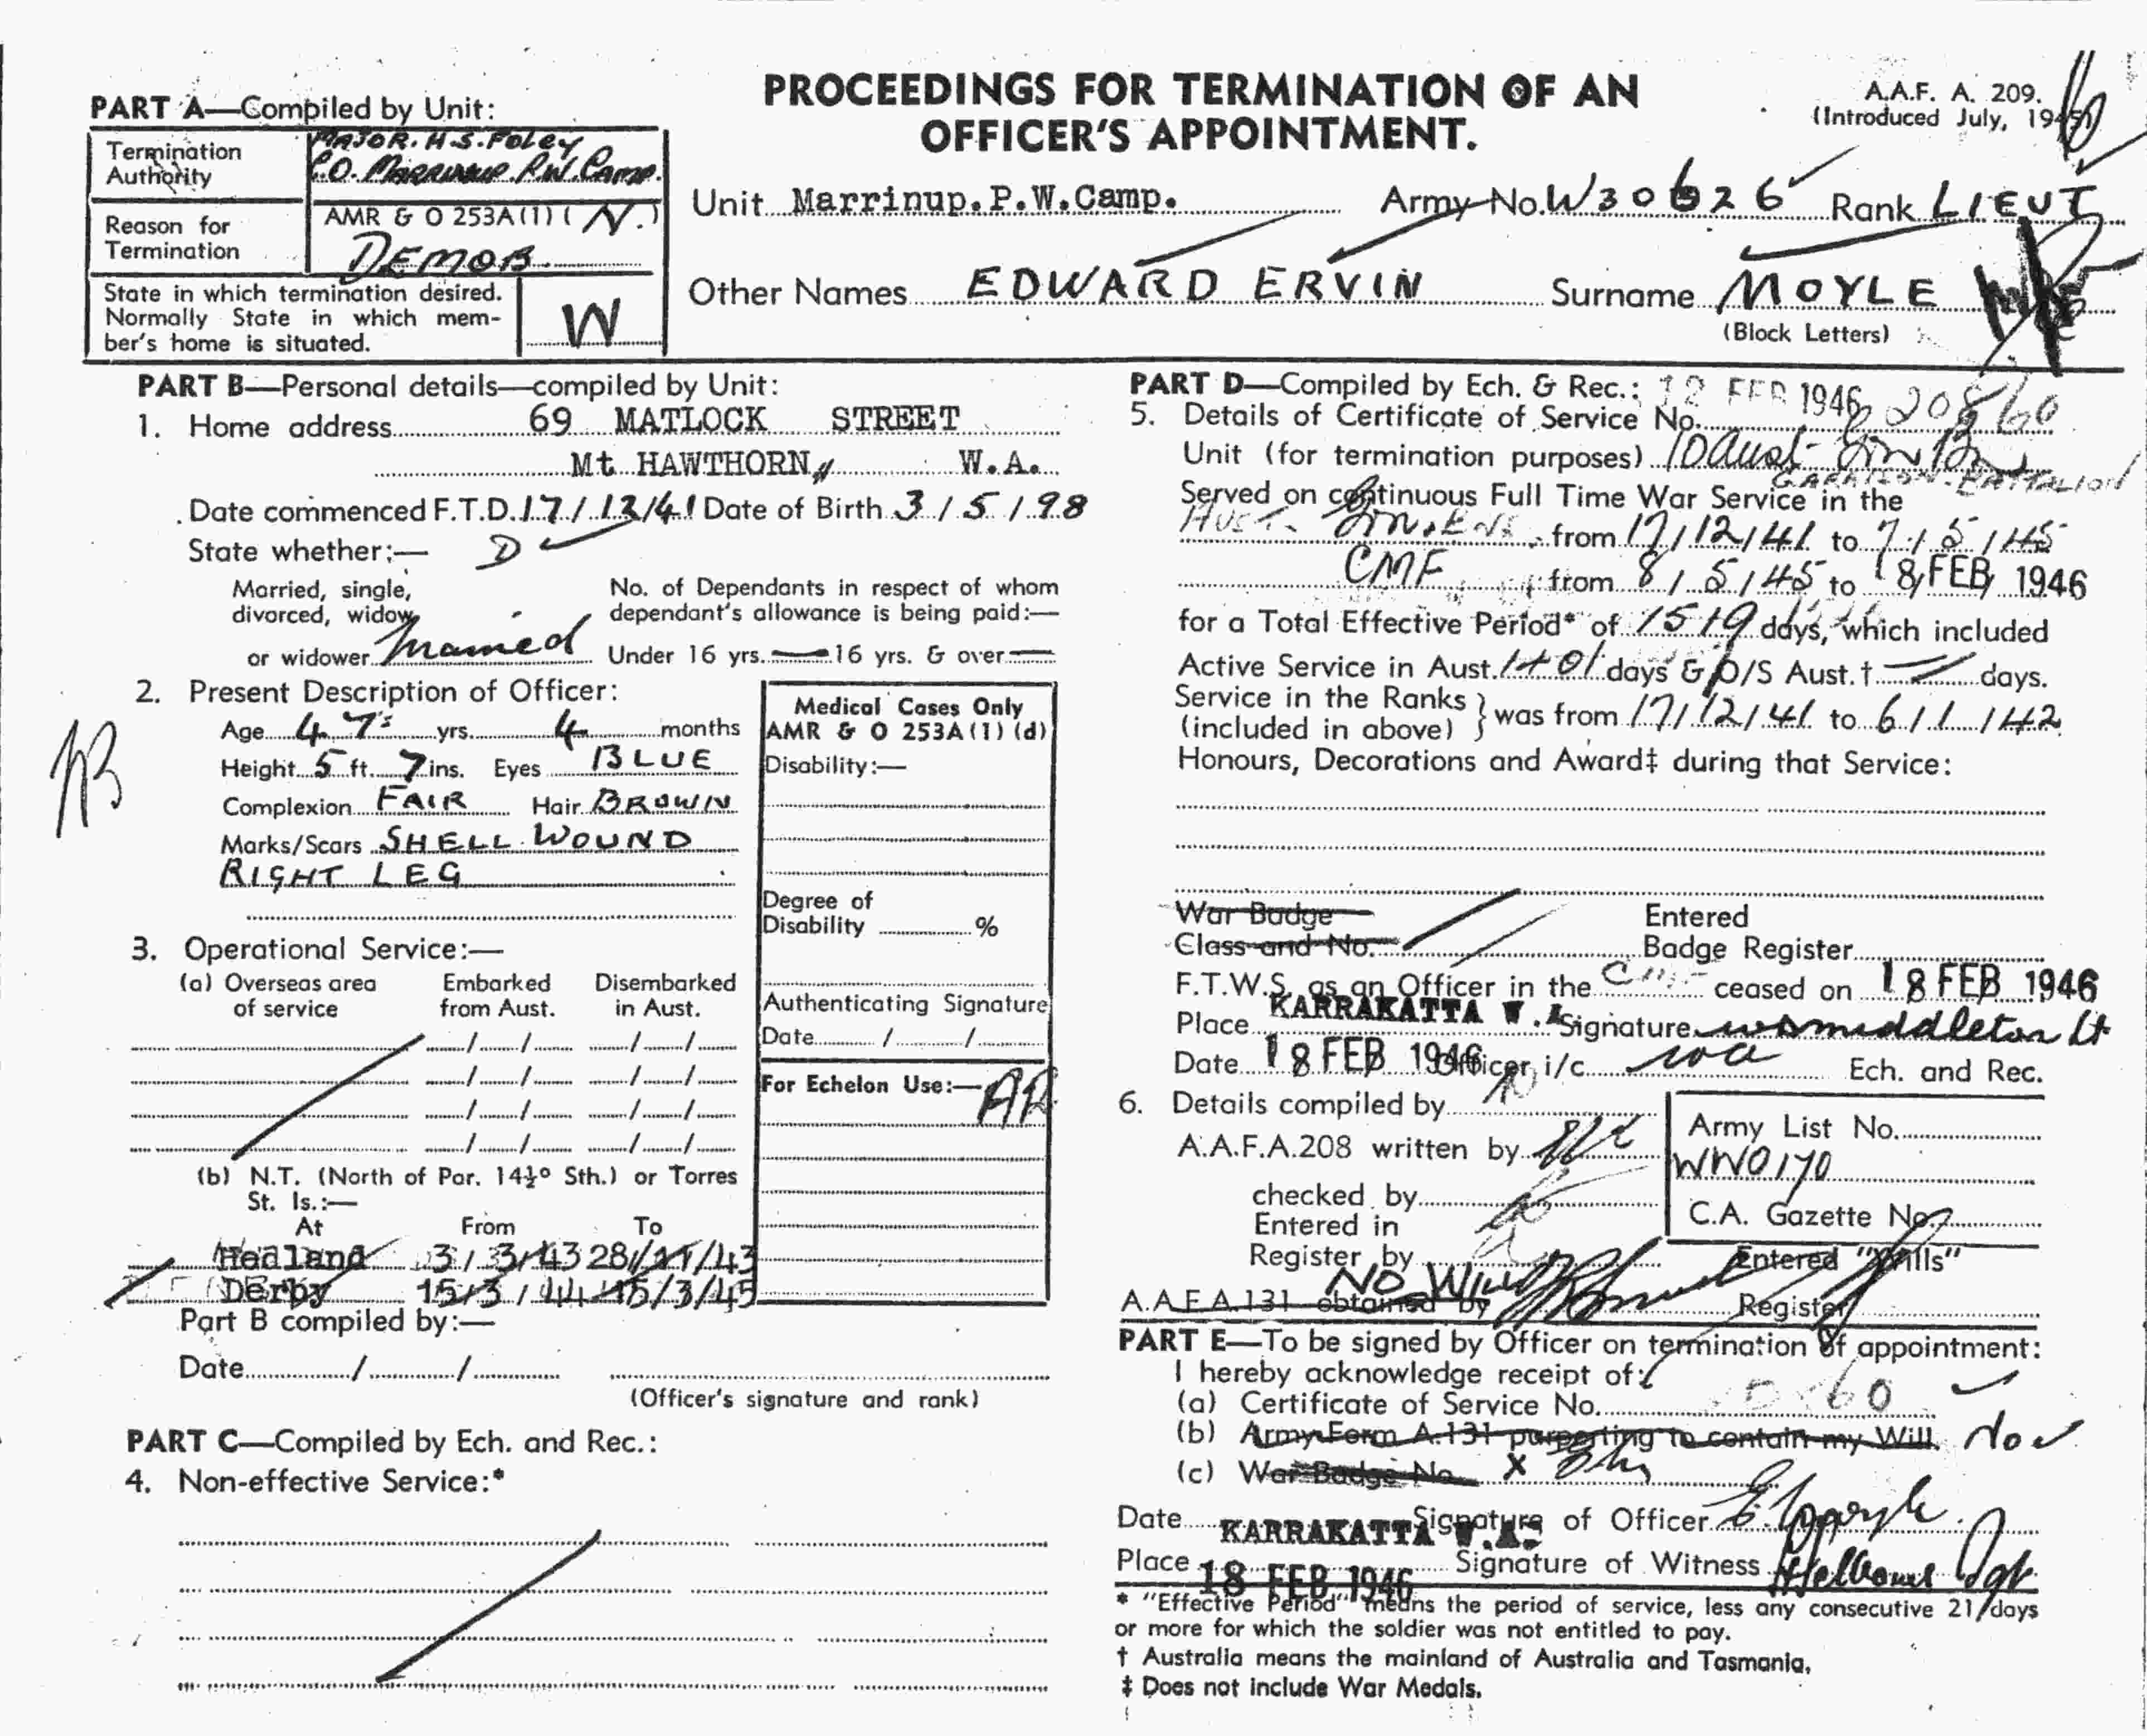 PROCEEDINGS FOR TERMINATION OF AN
OFFICER'S APPOINTMENT.
A.A.F. A. 209.
(Introduced July, 1945)
PART A—Compiled by Unit:
Termination Authority MAJOR. H.S. FOLEY
C.O. MARRINUP. P.W. CAMP.
Reason for Termination AMR & O 253A(1) (N.)
DEMOB.
State in which termination desired.
Normally State in which mem-
ber's home is situated. W
Unit Marrinup.P.W.Camp. Army No. W30626 Rank LIEUT
Other Names EDWARD ERVIN Surname MOYLE
(Block Letters)
PART B—Personal details—compiled by Unit:
1. Home address 69 MATLOCK STREET
Mt HAWTHORN, W.A.
Date commenced F.T.D. 17/12/41 Date of Birth 3/5/98
State whether:— D
Married, single,
divorced, widow,
or widower Married
No. of Dependants in respect of whom
dependant's allowance is being paid:—
Under 16 yrs. — 16 yrs. & over —
2. Present Description of Officer:
Age 47 yrs. 4 months
Height 5 ft. 7 ins. Eyes BLUE
Complexion FAIR Hair BROWN
Marks/Scars SHELL WOUND
RIGHT LEG
Medical Cases Only
AMR & O 253A(1) (d)
Disability:—
Degree of
Disability %
Authenticating Signature
Date / /
For Echelon Use:—
3. Operational Service:—
(a) Overseas area of service Embarked from Aust. Disembarked in Aust.
(b) N.T. (North of Par. 14½° Sth.) or Torres
St. Is.:—
At From To
Hedland 3/3/43 28/11/43
Derby 15/3/44 15/3/45
Part B compiled by:—
Date / /
(Officer's signature and rank)
PART C—Compiled by Ech. and Rec.:
4. Non-effective Service:*
PART D—Compiled by Ech. & Rec.: 12 FEB 1946
5. Details of Certificate of Service No. 20860
Unit (for termination purposes) 10 Aust Grn Bn
GARRISON BATTALION
Served on continuous Full Time War Service in the
from 17/12/41 to 7/5/45
CMF from 8/5/45 to 18 FEB 1946
for a Total Effective Period* of 1519 days, which included
Active Service in Aust. 1401 days & O/S Aust.† — days.
Service in the Ranks
(included in above) } was from 17/12/41 to 6/1/42
Honours, Decorations and Award‡ during that Service:
War Badge
Class and No.
Entered
Badge Register
F.T.W.S. as an Officer in the CMF ceased on 18 FEB 1946
Place KARRAKATTA W.A. Signature W S Middleton Lt
Date 18 FEB 1946 Officer i/c WA Ech. and Rec.
6. Details compiled by
A.A.F.A.208 written by
checked by
Entered in
Register by
Army List No.
WW0170
C.A. Gazette No.
No Will
Entered "Wills"
A.A.F.A.131 obtained by Register
PART E—To be signed by Officer on termination of appointment:
I hereby acknowledge receipt of:
(a) Certificate of Service No.
(b) Army Form A.131 purporting to contain my Will.
(c) War Badge No. X
Date KARRAKATTA W.A. Signature of Officer E. E. Moyle
Place 18 FEB 1946 Signature of Witness
* "Effective Period" means the period of service, less any consecutive 21 days
or more for which the soldier was not entitled to pay.
† Australia means the mainland of Australia and Tasmania.
‡ Does not include War Medals.